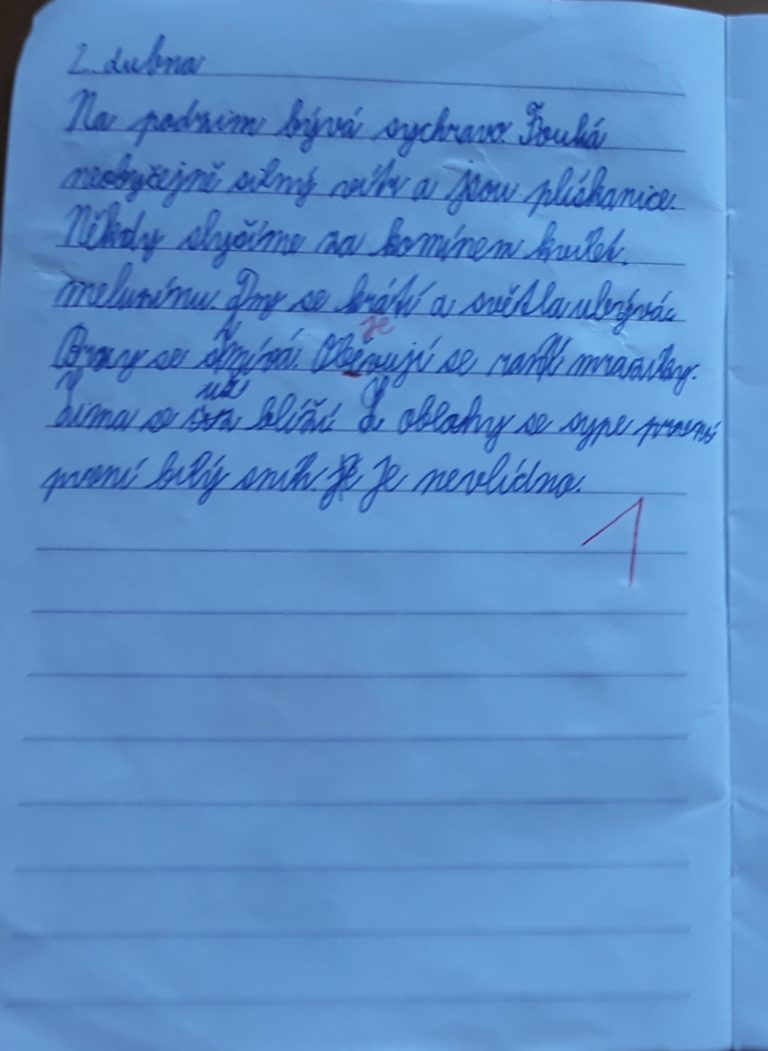 2. dubna
Na podzim bývá sychravo. Fouká
neobyčejně silný vítr a jsou plískanice.
Někdy slyšíme za komínem kvílet
melusínu. Dny se krátí a světla ubývá.
Brzy se stmívá. Oběvují se ranní mrazíky.
je
Zima se blíží Z oblohy se sype
už
první bílý sníh. Je nevlídno.
1